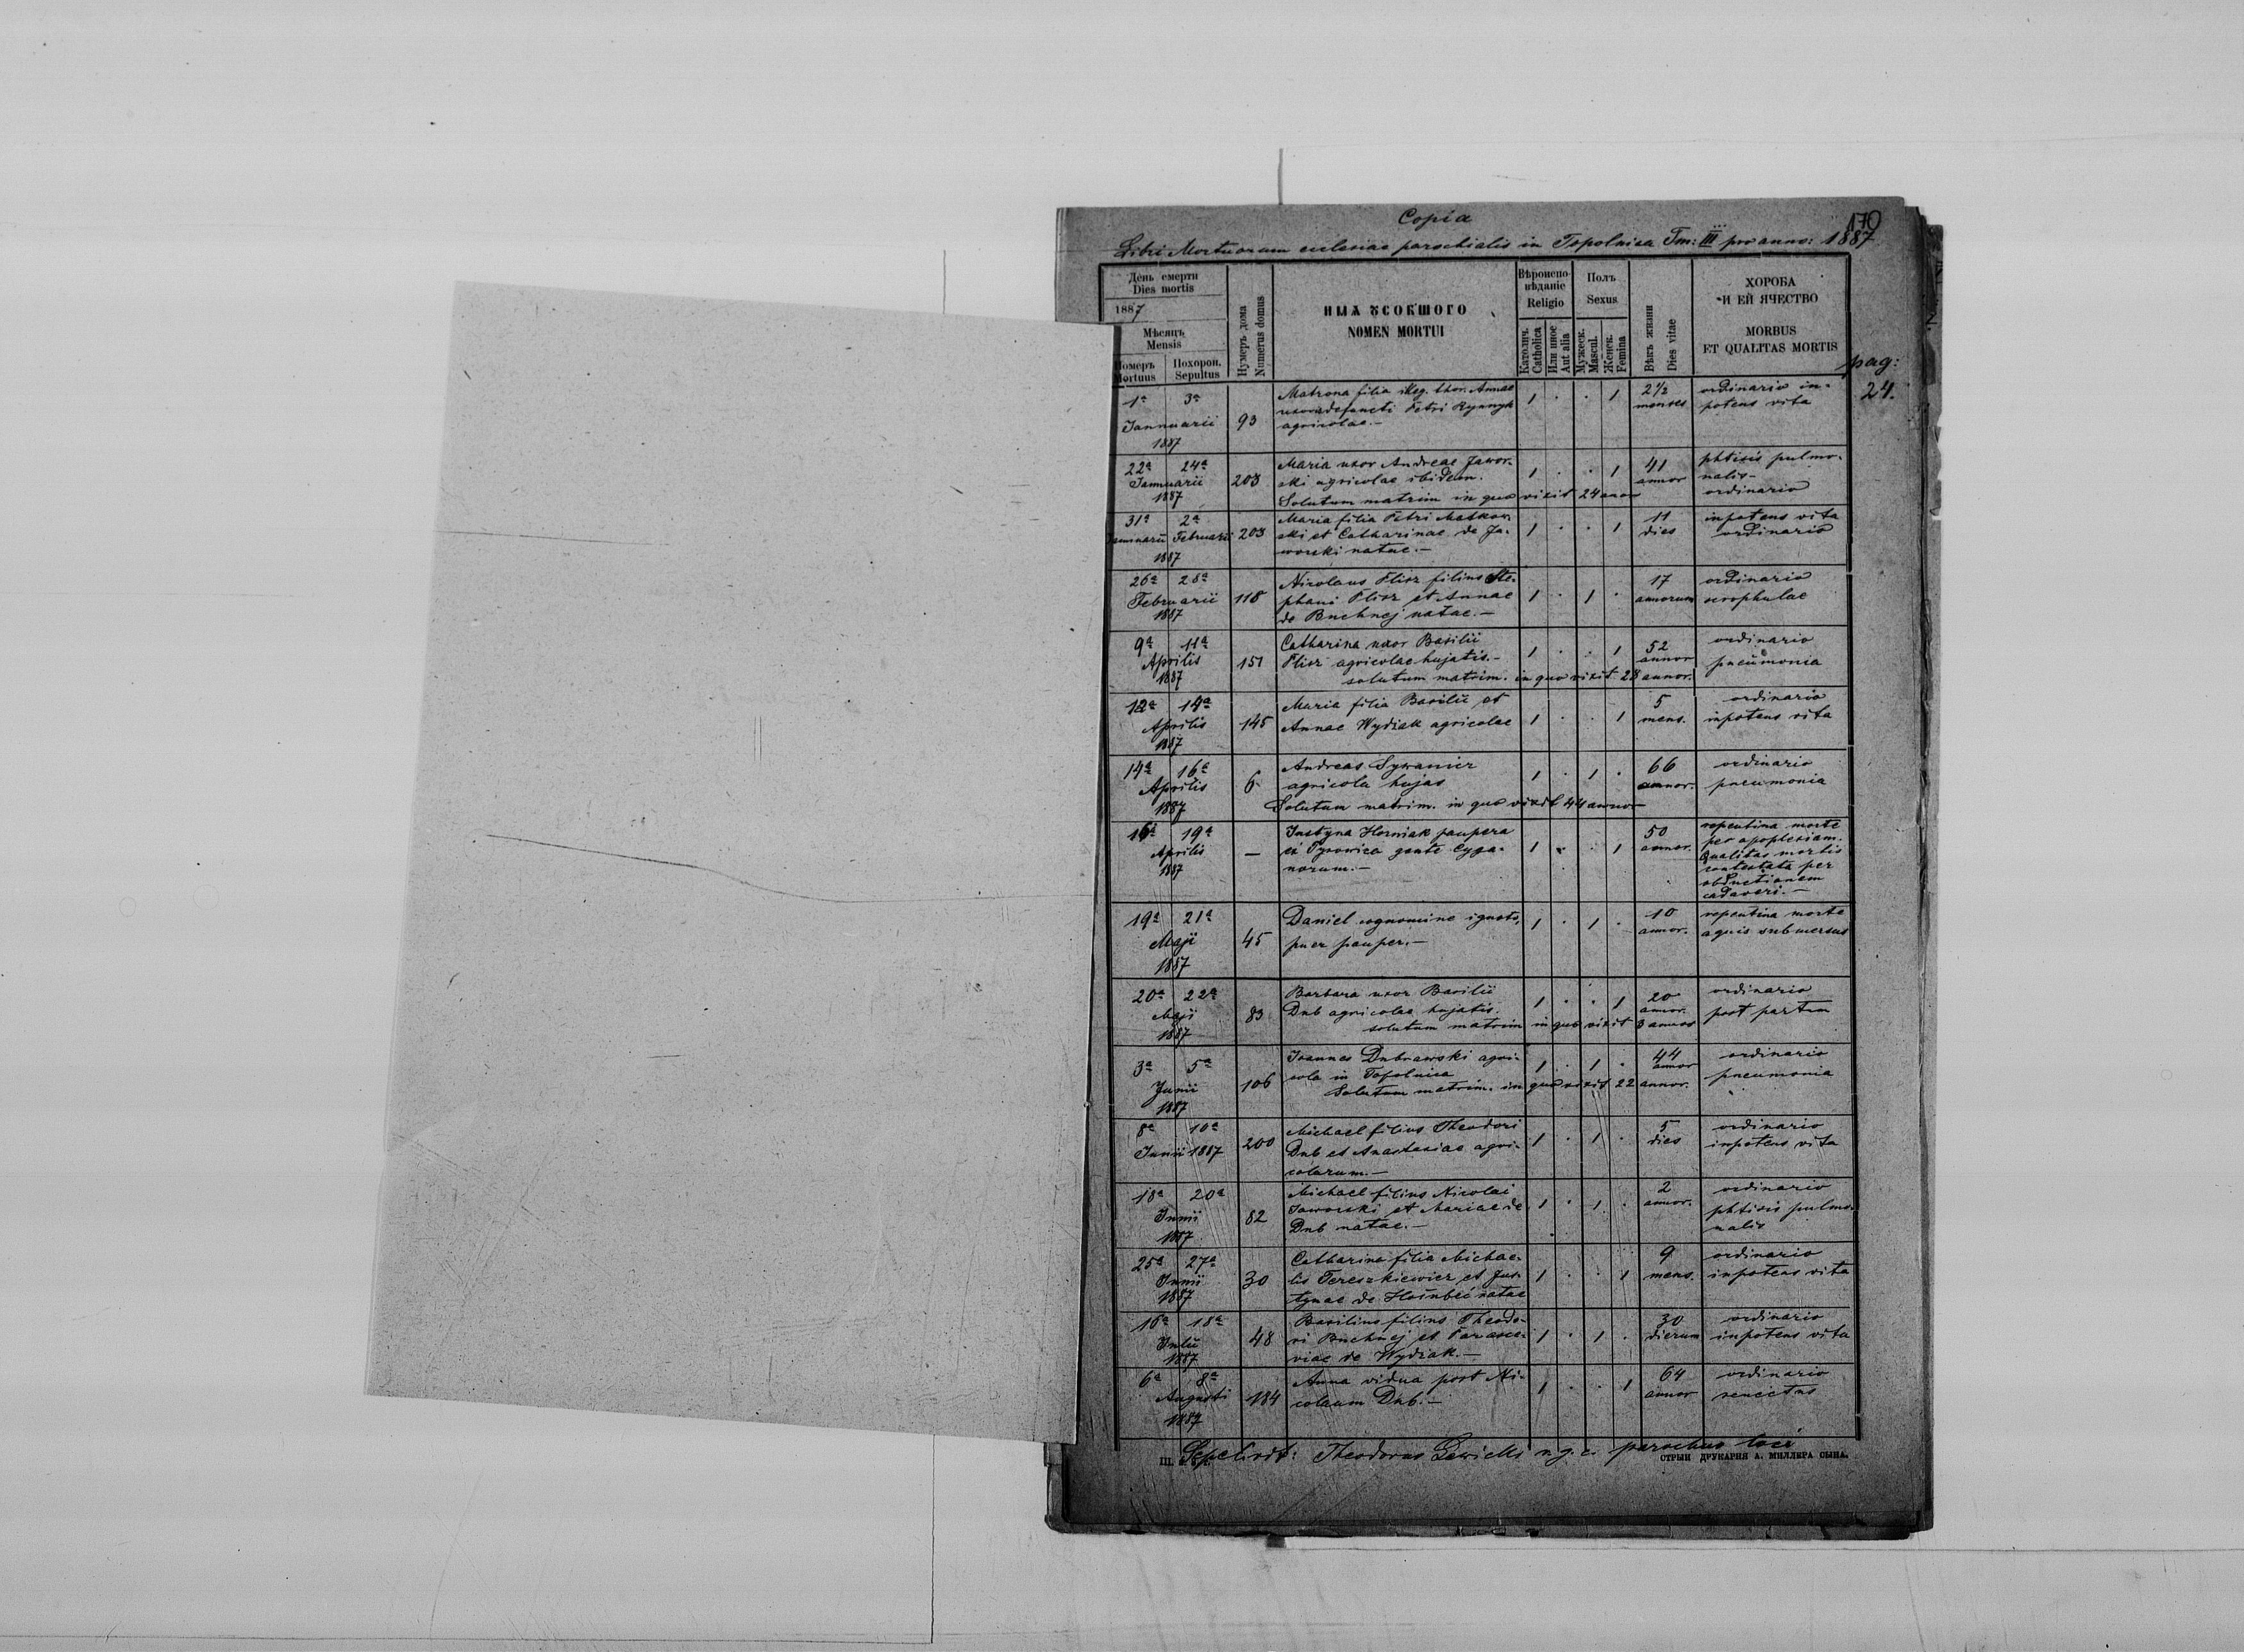 Copia
170
Libri Mortuorum ecclesiae parochialis in Topolnica Tm: III pro anno: 1887
День смерти
Dies mortis
1887
Мѣсяць
Mensis
Померъ
Mortuus
Похорон.
Sepultus
Нумеръ дома
Numerus domus
ИМѦ ѸСОПШОГО
NOMEN MORTUI
Вѣроиспо-
вѣданіе
Religio
Католич.
Catholica
Или иное
Aut alia
Полъ
Sexus
Мужеск.
Mascul.
Женск.
Femina
Вѣкъ жизни
Dies vitae
ХОРОБА
И ЕЙ ЯЧЕСТВО
MORBUS
ET QUALITAS MORTIS
pag:
24.
1ª 3ª Januarii 1887 93
Matrona filia illeg. thor. Annae
defuncti Petri
agricolae.-
1 . . 1 2½ menses
ordinario in-
potens vita
22ª 24ª Januarii 1887 203
Maria uxor Andreae Jawor-
ski agricolae ibidem.
Solutum matrim in quo vixit 24 annor
1 . . 1 41 annor
phtisis pulmo-
nalis-
ordinario
31ª Januarii 2ª Februarii 1887 203
Maria filia Petri Matkow-
ski et Catharinae de Ja-
worski natae.-
1 . . 1 11 dies
inpotens vita
ordinario
26ª 28ª Februarii 1887 118
Nicolaus Flisz filius Ste-
phani Flisz et Annae
de Buchnej natae.-
1 . 1 . 17 annorum
ordinario
scrophulae
9ª 11ª Aprilis 1887 151
Catharina uxor Basilii
Flisz agricolae hujatis.-
solutum matrim. in quo vixit 28 annor.
1 . . 1 52 annor
ordinario
pneumonia
12ª 14ª Aprilis 1887 145
Maria filia Basilii et
Annae Wydiak agricolae
1 . . 1 5 mens.
ordinario
inpotens vita
14ª 16ª Aprilis 1887 6
Andreas Sywanicz
agricola hujas
Solutum matrim. in quo vixit 44 annor
1 . 1 . 66 annor.
ordinario
pneumonia
16ª 19ª Aprilis 1887 —
Justyna Horniak paupera
ex Tysowica gente Cyga-
norum.-
1 . . 1 50 annor.
repentina morte
per apoplexiam.
Qualitas mortis
contestata per
obductionem
cadaveri.-
19ª 21ª Maji 1887 45
Daniel cognomine ignoto,
puer pauper.-
1 . 1 . 10 annor.
repentina morte
aquis submersus
20ª 22ª Maji 1887 83
Barbara uxor Basilii
Dub agricolae hujatis.
solutum matrim in quo vixit 3 annos
1 . . 1 20 annor.
ordinario
post partum
3ª 5ª Junii 1887 106
Joannes Dubrawski agri-
cola in Topolnica
Solutum matrim. in quo vixit 22 annor.
1 . 1 . 44 annor
ordinario
pneumonia
8ª 10ª Junii 1887 200
Michael filius Theodori
Dub et Anastasiae agri-
colarum.-
1 . 1 . 5 dies
ordinario
inpotens vita
18ª 20ª Junii 1887 82
Michael filius Nicolai
Jaworski et Mariae de
Dub natae.-
1 . 1 . 2 annor.
ordinario
phtisis pulmo-
nalis
25ª 27ª Junii 1887 30
Catharina filia Michae-
lis Tereszkiewicz et Jus-
tynae de natae
1 . . 1 9 mens.
ordinario
inpotens vita
16ª 18ª Julii 1887 48
Basilius filius Theodo-
ri Buchnej et Parasce-
viae de Wydiak.-
1 . 1 . 30 dierum
ordinario
inpotens vita
6ª 8ª Augusti 1887 184
Anna vidua post Ni-
colaum Dub.-
1 . . 1 64 annor
ordinario
senectus
Sepelivit: Theodorus parochus loci
III.
СТРЫИ ДРУКАРНЯ А. МИЛЛЕРА СЫНА.